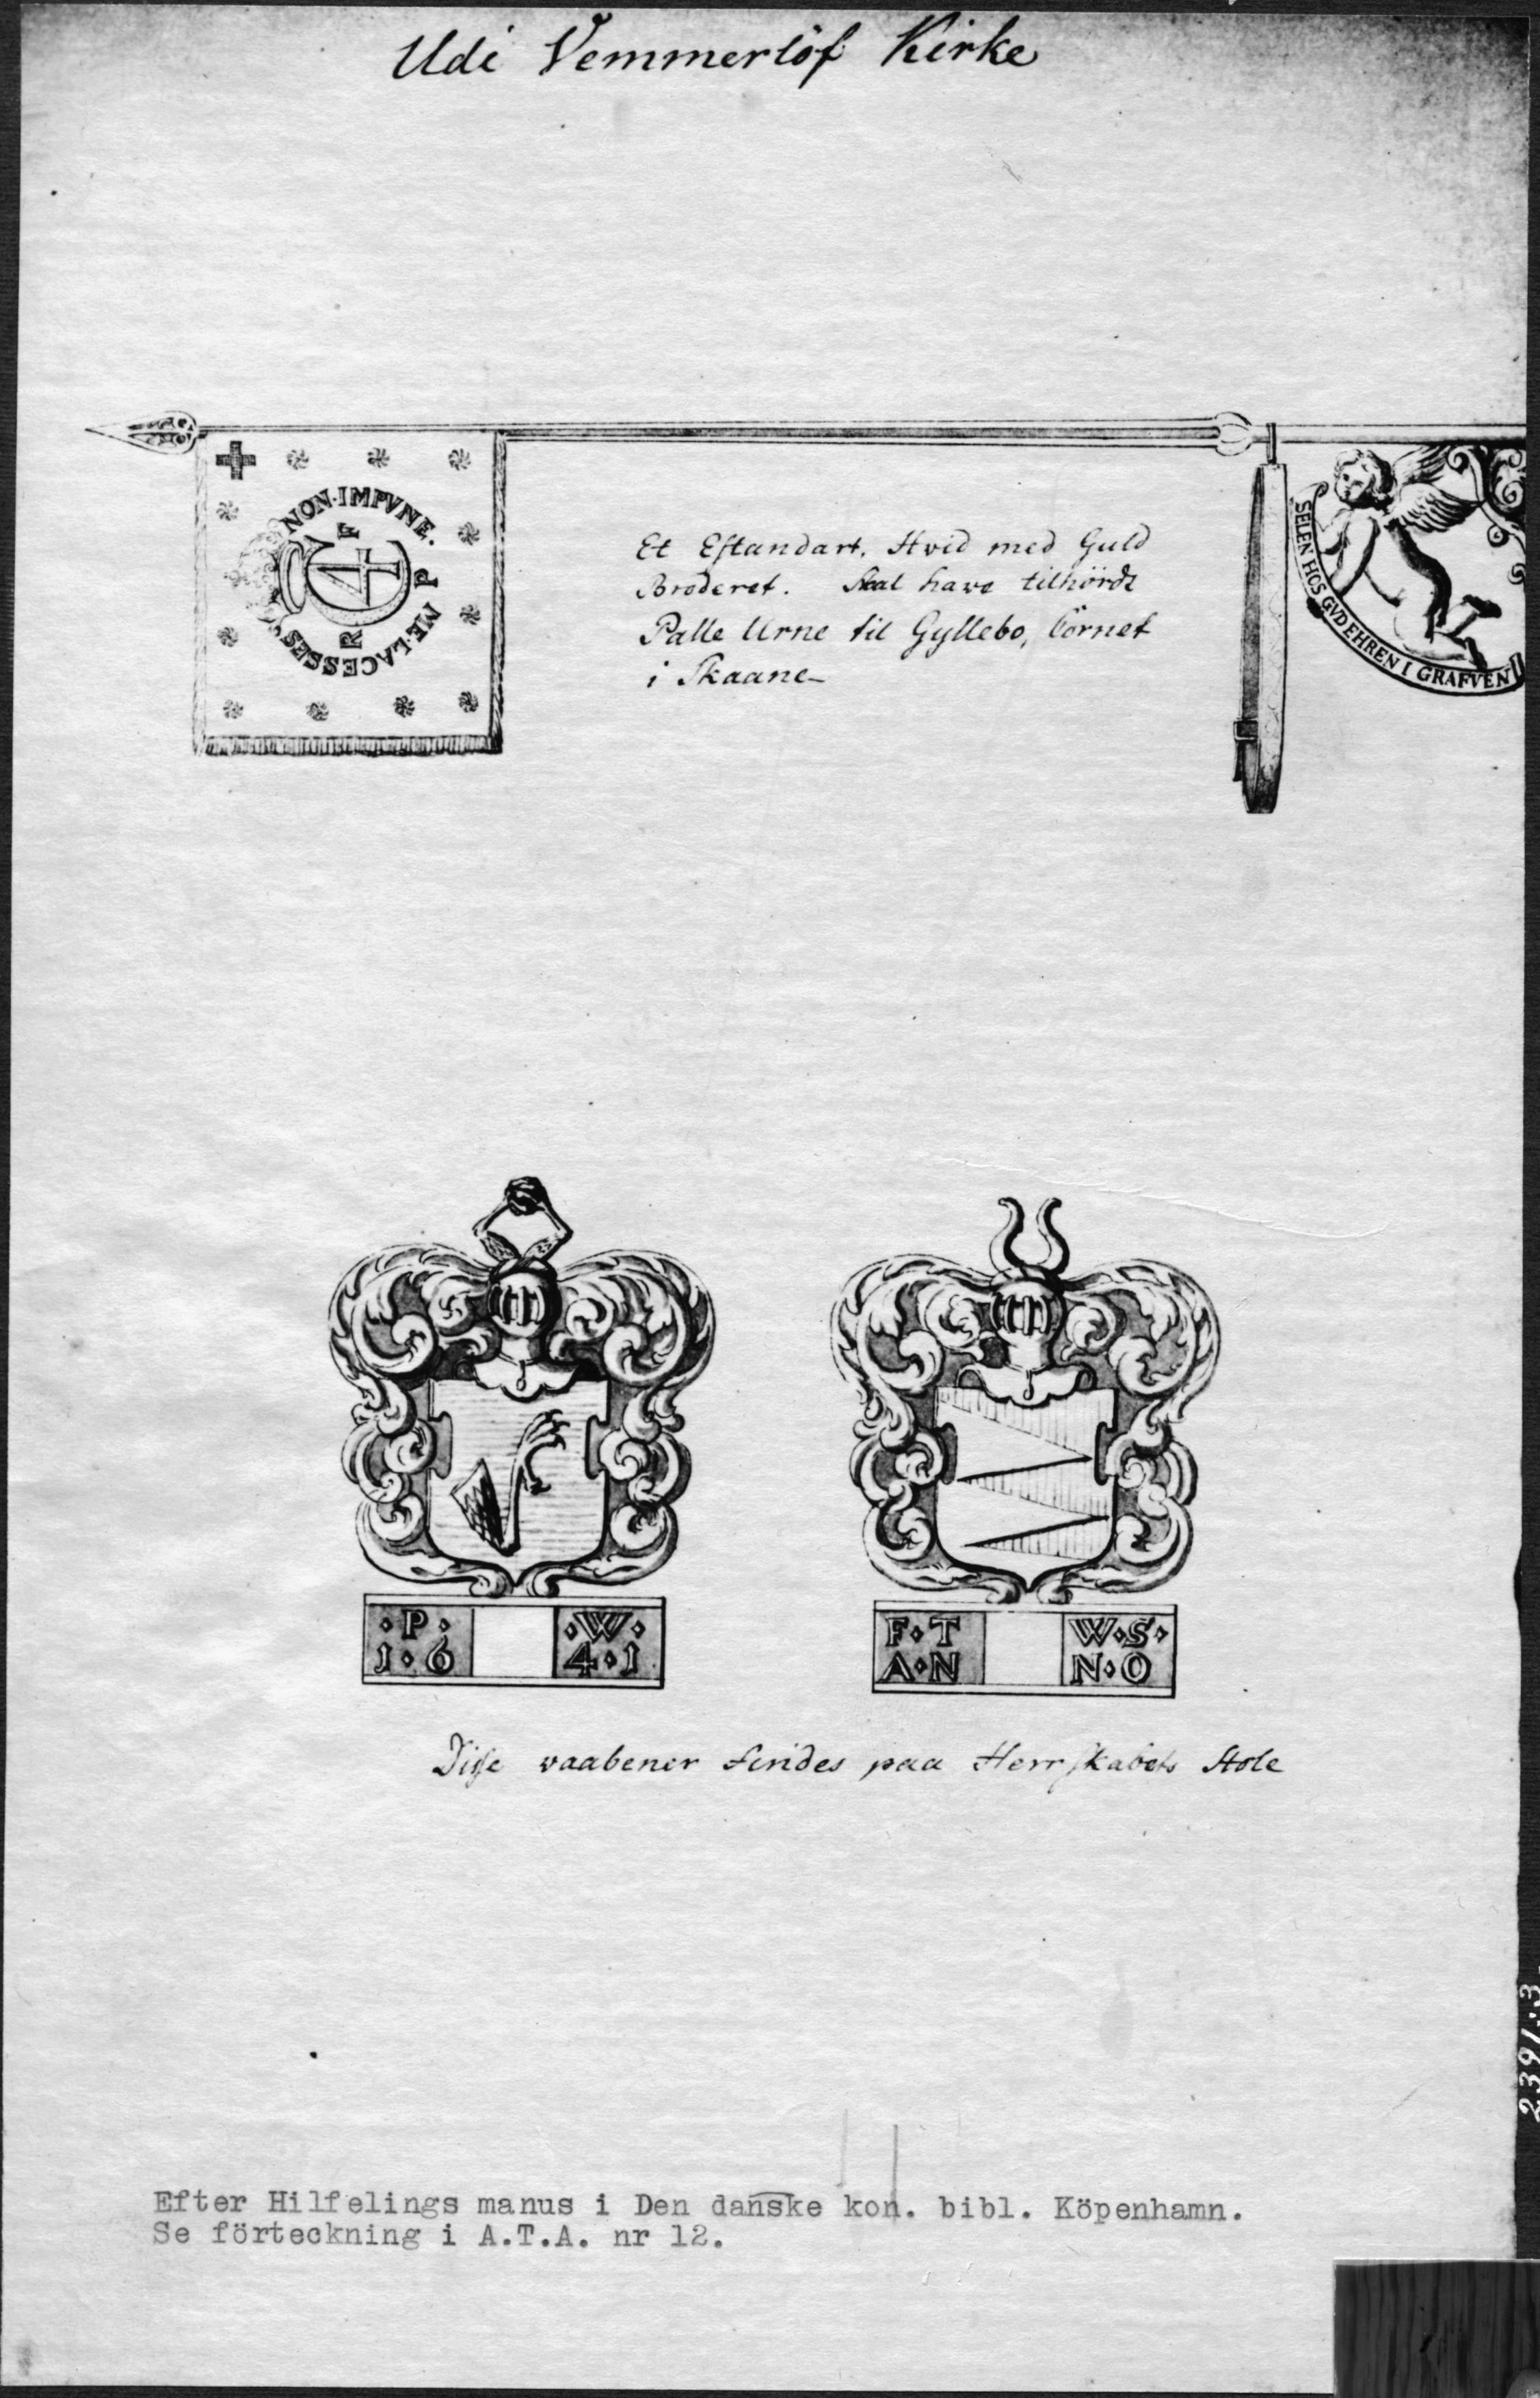 Udi Vemmerlöf Kirke
NON·IMPVNE·
ME·LACESSES
F
P
R
C4
Et Estandart. Hvid med Guld
Broderet. Skal have tilhördt
Palle Urne til Gyllebo,
i Skaane_
SELEN HOS GVD EHREN I GRAFVEN
·P· ·W·
1·6 4·1
F·T W·S·
A·N N·O
Disse vaabener findes paa Herrskabets Stole
Efter Hilfelings manus i Den danske kon. bibl. Köpenhamn.
Se förteckning i A.T.A. nr 12.